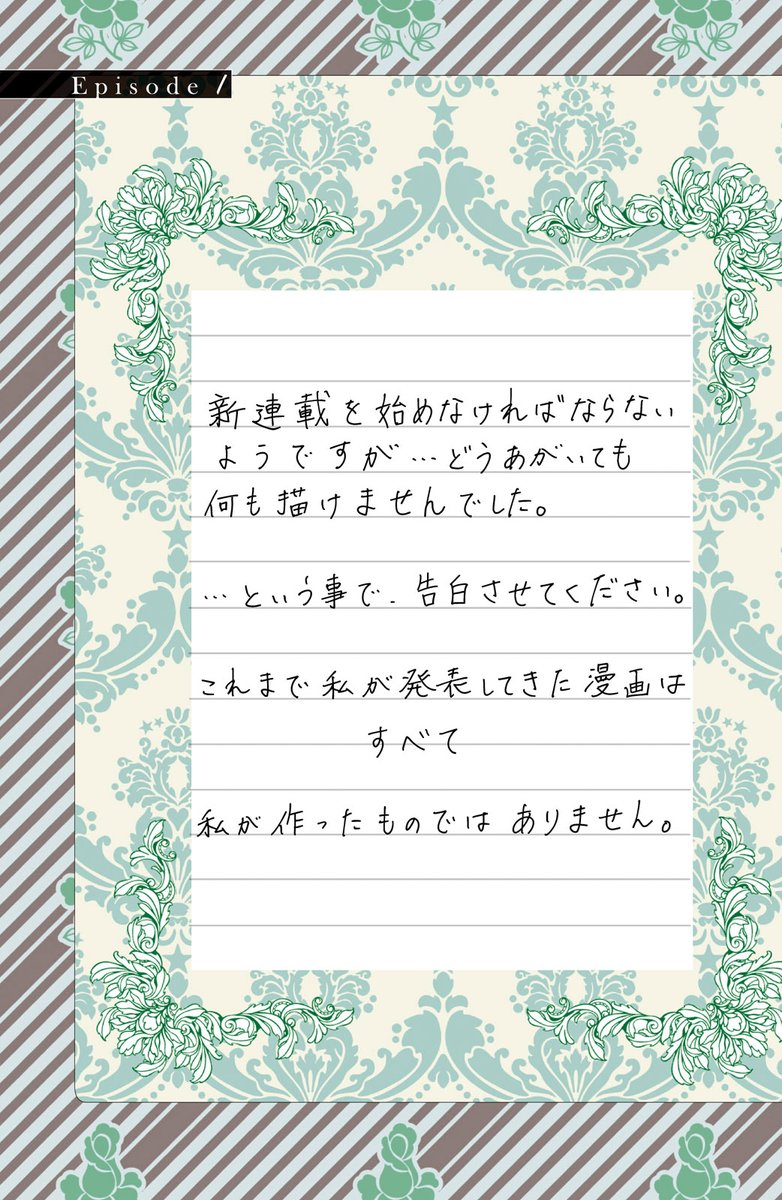 Episode 1
新連載を始めなければならない
ようですが…どうあがいても
何も描けませんでした。
…という事で、告白させてください。
これまで私が発表してきた漫画は
すべて
私が作ったものではありません。